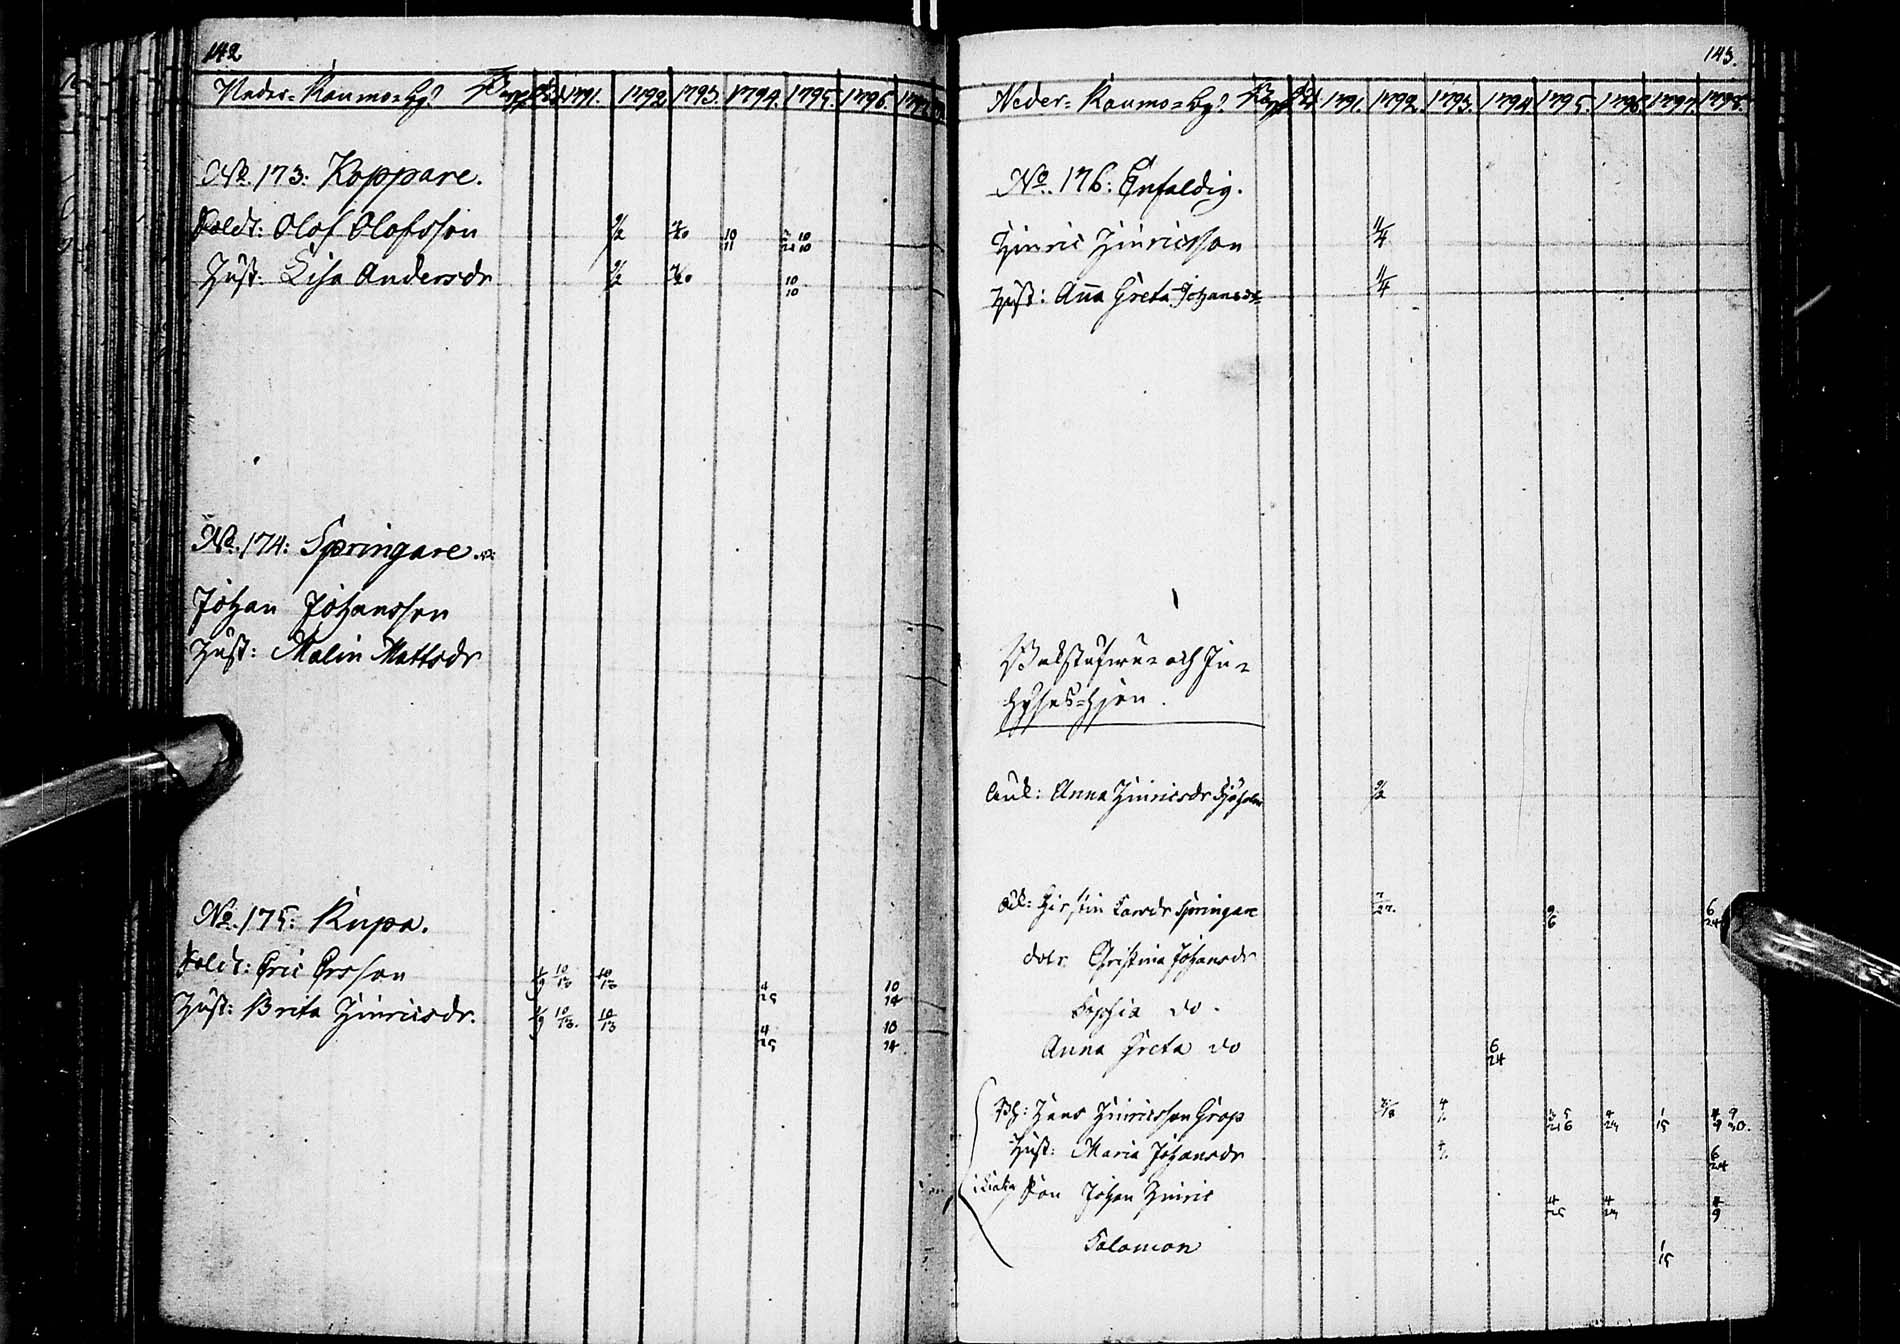 142
Neder-Raumo-by: 1791. 1792 1793. 1794. 1795. 1796. 1797
No. 173: Koppare.
Soldt: Olof Olofsson 9/2 10/11 10/10
Hust: Lisa Andersdr 9/2 10/10
No. 174: Springare
Johan Johansson
Hust: Malin Mattsdr
No. 175: Kupa.
Soldt: Eric Ersson 10/13 10/13 4/25 10/14
Hust: Brita Hinricsdr. 10/13. 10/13 4/25 10/14
143.
Neder-Raumo-by: 1791. 1792. 1793. 1794. 1795. 1796. 1797. 1798.
No. 176: Enfaldig.
Hinric Hinricsson 11/4
Hust: Aña Greta Johansdr 11/4
Bakstufvu- och In-
hyses-Hjon.
Enk: Anna Hinricsdr 9/2
Enk: Kirstin Larsdr Springare 7/27. 9/6 6/24
dotr Christina Johansdr
Sophia do.
Anna Greta do 6/24
Hans Hinricsson Grop 1/15 4/9 9/30.
Hust: Maria Johansdr 6/24
Son Johan Hinric 4/25 4/9
Salomon 1/15